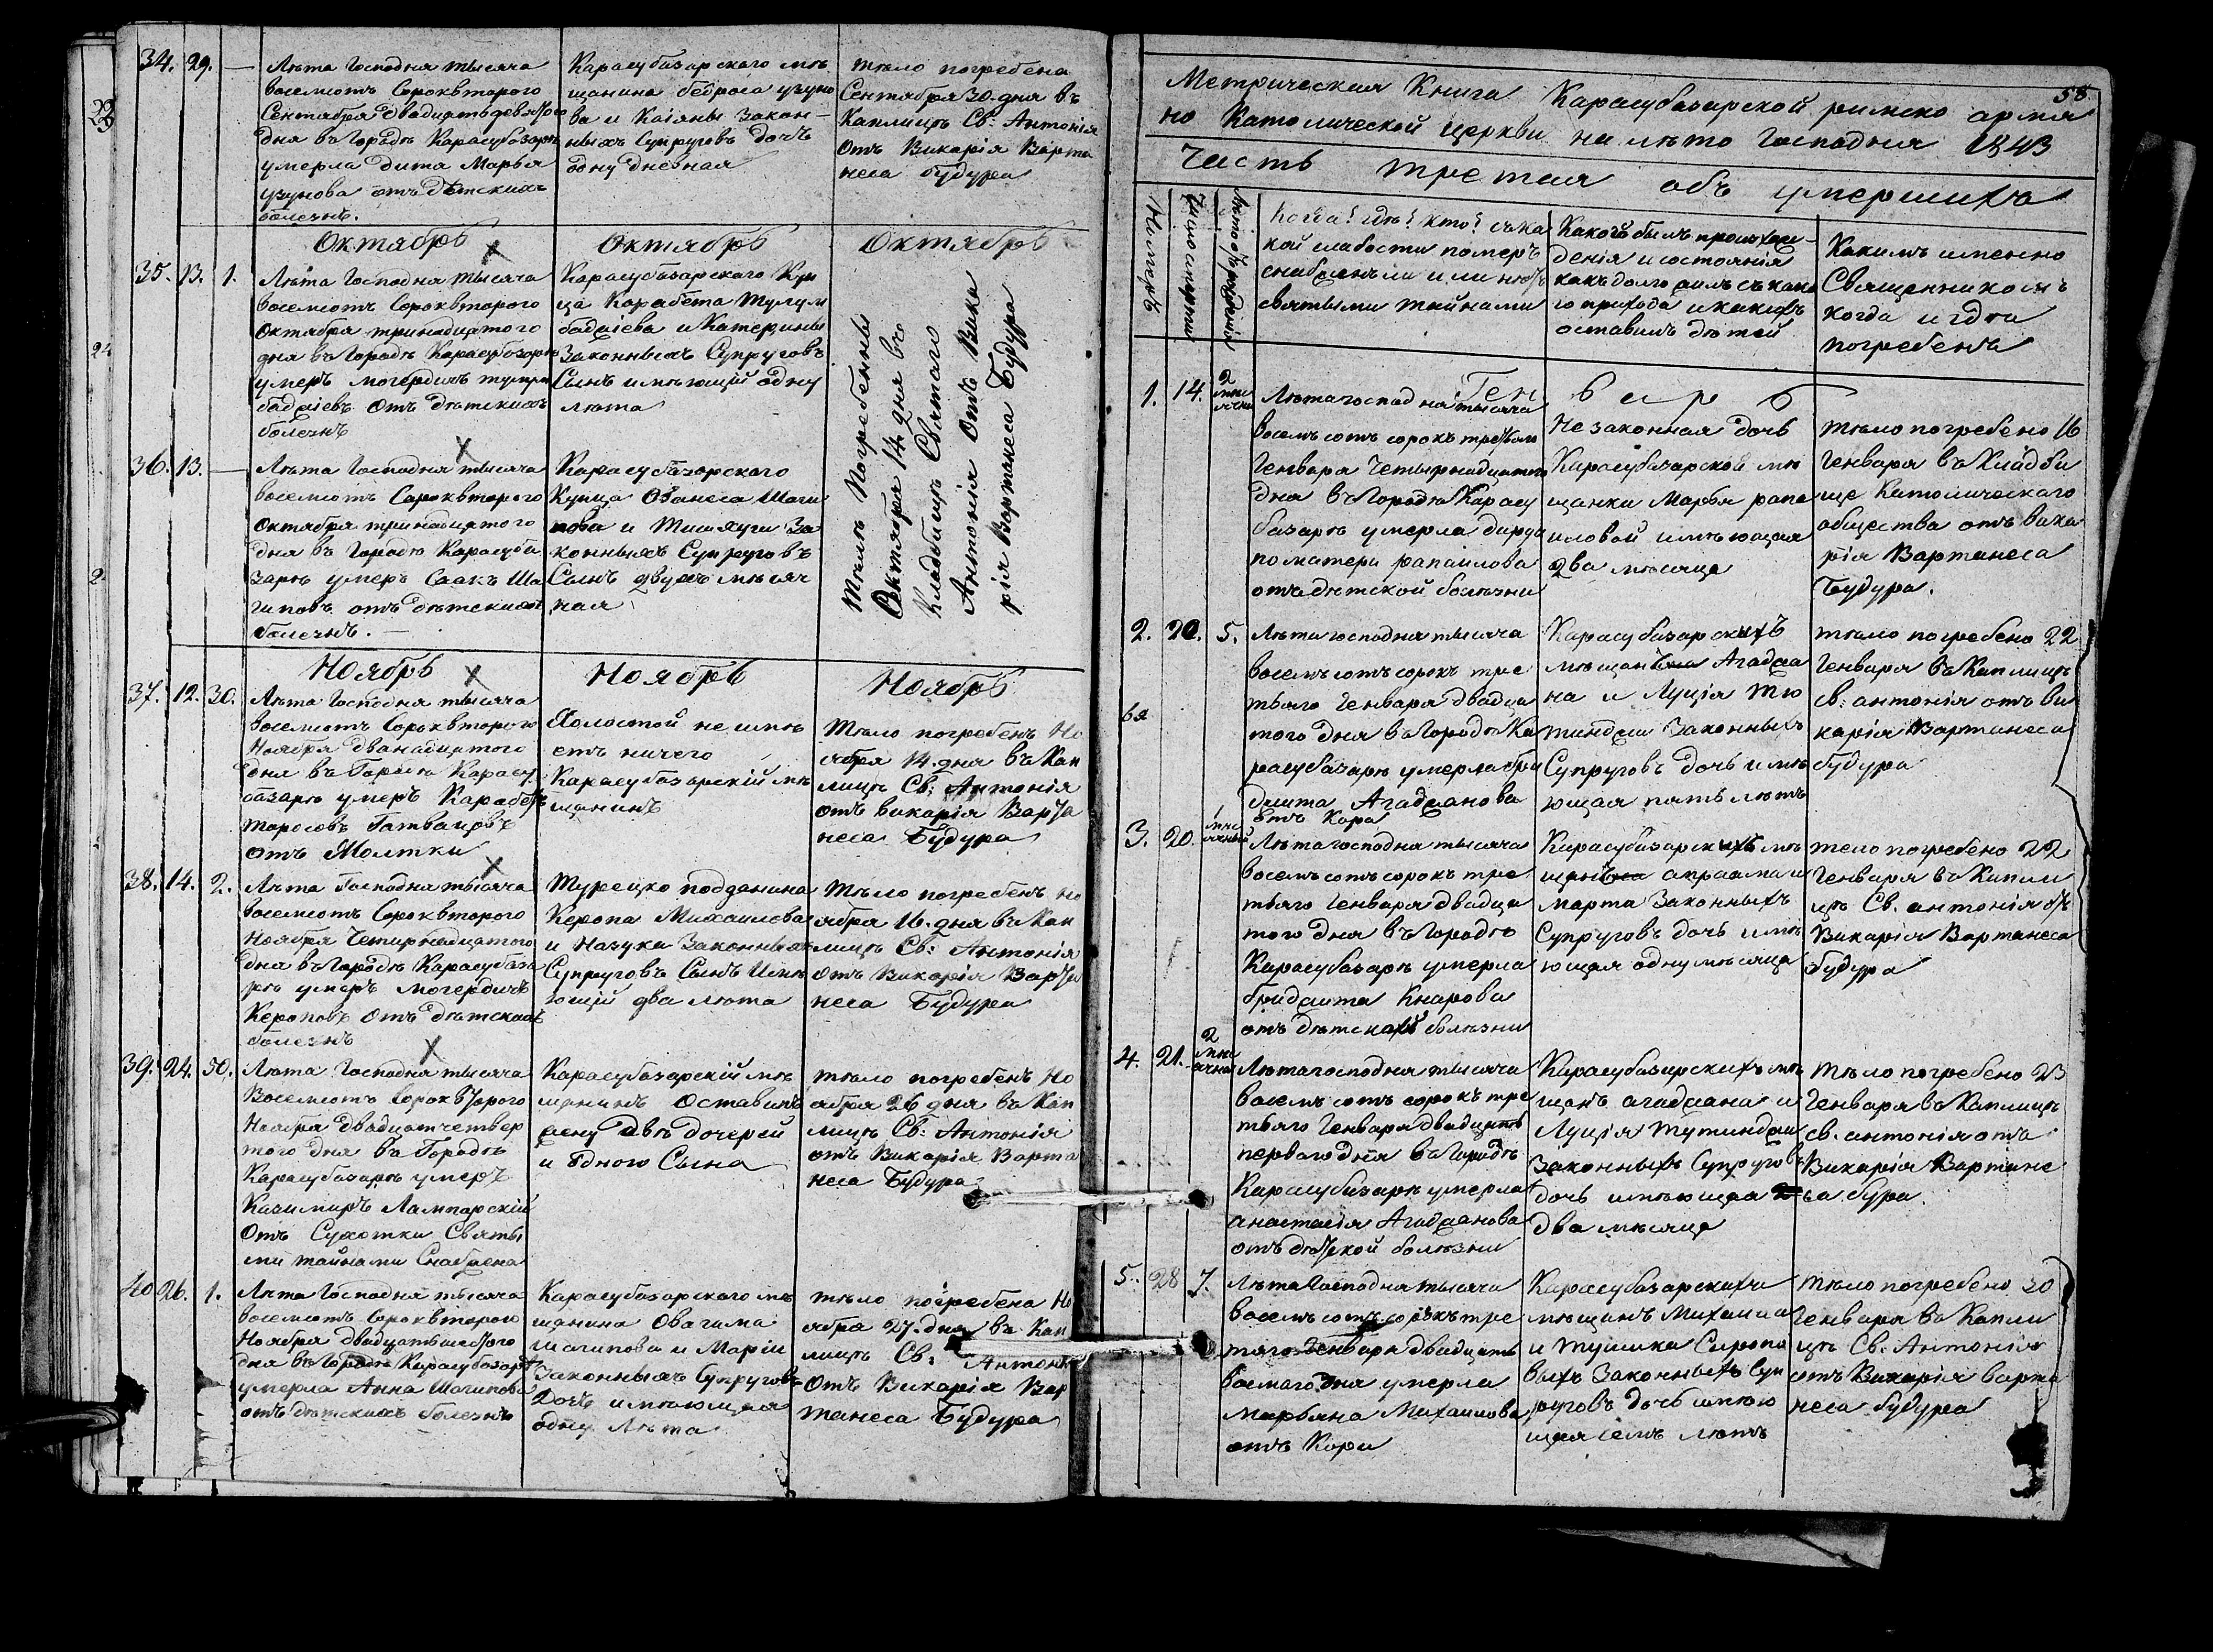 34. 29. —
Лѣта Господня тысяча
восемсотъ Сороквторого
Сентября двадцатьдевятого
дня въ Городѣ Карасубазарѣ
умерла дита Марья
узунова отъ дѣтскихъ
болезнѣ.
Карасубазарского мѣ
щанина бедроса узуно
ва и Каіяны Закон-
ныхъ Супруговъ дочъ
одну дневная
тѣло погребена
Сентября 30. дня въ
Каплицѣ Св: Антонія
Отъ Викарія Варта
неса будура
Октябрь
Октябрь
Октябрь
35. 13. 1.
Лѣта Господня тысяча
восемсотъ Сороквторого
Октября тринадцатого
дня въ Городѣ Карасубазарѣ
умеръ могердичъ
бадаіевъ Отъ дѣтскихъ
болезнѣ
Карасубазарского Куп
ца Карабета Тулум
бадаіева и Катерины
Законныхъ Супруговъ
Сынъ имѣющій одну
лѣта
36. 13. —
Лѣта Господня тысяча
восемсотъ Сороквторого
Октября тринадцатого
дня въ Городѣ Карасуба
зарѣ умеръ Саакъ Ша
гиновъ отъ дѣтскихъ
болезнѣ. —
Карасубазарского
Купца Ованеса Шаги
нова и За
конныхъ Супруговъ
Сынъ двухъ мѣсяч
ная
Тѣлѣ Погребенны
Октября 14. дня въ
Кладбищѣ Святаго
Антонія Отъ Вика
рія Вартанеса Будура
Ноябрь
Ноябрь
Ноябрь
37. 12. 30.
Лѣта Господня тысяча
восемсотъ Сороквторого
Ноября дванадцатого
дня въ Городѣ Карасу
базарѣ умеръ Карабетъ
Торосовъ
отъ
Холостой не имѣ
етъ ничего
Карасубазарскій мѣ
щанинъ
Тѣло погребенъ Но
ября 14. дня въ Кап
лицѣ Св: Антонія
отъ викарія Варта
неса Будура
38. 14. 2.
Лѣта Господня тысяча
восемсотъ Сороквторого
Ноября Четирнадцатого
дня въ Городѣ Карасубаза
рѣ умеръ могердичъ
Кероповъ Отъ дѣтскихъ
болезнѣ
Турецко подданина
Керопа Михаилова
и Назука Законныхъ
Супруговъ Сынъ Имѣ
ющій два лѣта
Тѣло погребенъ но
ября 16. дня въ Кап
лицѣ Св: Антонія
отъ Викарія Варта
неса Будура
39. 24. 50.
Лѣта Господня тысяча
Восемсотъ Сороквторого
Ноября двадцатчетвер
того дня въ Городѣ
Карасубазарѣ умеръ
Казимиръ Лампарскій
Отъ Сухотки Святы
ми тайнами Снабжена
Карасубазарскій мѣ
щанинъ Оставилъ
жену двѣ дочерей
и одного Сына
тѣло погребенъ Но
ября 26 дня въ Кап
лицѣ Св: Антонія
отъ Викарія Варта
неса Будура
40 26. 1.
Лѣта Господня тысяча
восемсотъ Сороквторого
Ноября двадцатьшестого
дня въ Городѣ Карасубазарѣ
умерла Анна Шагинова
отъ дѣтскихъ болезнѣ
Карасубазарского мѣ
щанина Овагима
шагинова и Маріи
Законныхъ Супруговъ
Дочь имѣющая
одну Лѣта
тѣло погребена Но
ября 27. дня въ Кап
лицѣ Св: Антонія
Отъ Викарія Вар
танеса Будура
58
Метрическая Книга Карасубазарской римско армя
но Католической церкви на лѣто Господня 1843
Часть третая объ умершихъ
Когда? гдѣ? кто? съ ка
кой слабости померъ
снабженъ ли или нѣтъ
святыми тайнами
Какого былъ происхож-
денія и состоянія
какъ долго жилъ съ како
го прихода и какихъ
оставилъ дѣтей
Какимъ именно
Священникомъ
когда и гдѣ
погребенъ
Генварь
1. 14. 2 мѣсячна
Лѣта господня тысяча
восемъ сотъ сорокъ третьяго
Генваря Четырнадцатого
дня въ Городѣ Карасу
базарѣ умерла
по матери рапаилова
отъ дѣтской болѣзни
Незаконная дочь
Карасубазарской мѣ
щанки Марья рапа
иловой имѣющая
два мѣсяца
тѣло погребено 16
Генваря въ Кладби
ще Католическаго
общества отъ вика
рія Вартанеса
Будура.
2. 20. 5.
Лѣта господня тысяча
восемъ сотъ сорокъ тре
тьяго Генваря двадца
того дня въ Городѣ Ка
расубазарѣ умерла бри
джита Агаджанова
отъ Кора
Карасубазарскихъ
мѣщанъ Агаджа
на и Луція Тю
тинджи Законныхъ
Супруговъ дочь имѣ
ющая пять лѣтъ
тѣло погребено 22
Генваря въ Каплицѣ
св. антонія отъ ви
карія Вартанеса
будура
3. 20. 1 мѣсячный
Лѣта господня тысяча
восемъ сотъ сорокъ тре
тьяго Генваря двадца
того дня въ Городѣ
Карасубазарѣ умерла
бриджита Кнарова
отъ дѣтскахъ болѣзни
Карасубазарскихъ мѣ
щанъ апраама и
марта Законныхъ
Супруговъ дочь имѣ
ющая одну мѣсяца
тело погребено 22
Генваря въ Капли
цѣ Св. антонія отъ
Викарія Вартанеса
будура
4. 21. 2 мѣсячна
Лѣта господня тысяча
восемъ сотъ сорокъ тре
тьяго Генваря двадцать
перваго дня въ Городѣ
Карасубазарѣ умерла
анастасія Агаджанова
отъ дѣтской болѣзни
Карасубазарскихъ мѣ
щанъ агаджана и
Луція Тутинджи
Законныхъ Супруговъ
дочь имѣющая
два мѣсяца
Тѣло погребено 23
Генваря въ Каплицѣ
св. антонія отъ
Викарія Вартане
са бура.
5. 28 7.
Лѣта Господня тысяча
восемъ сотъ сорокъ тре
тяго Генваря двадцать
восмаго дня умерла
Марьяна Михаилова
отъ Кори
Карасубазарскихъ
мѣщанъ Михаила
и Тушика Сиропо
выхъ Законныхъ Суп
руговъ дочь имѣю
щая семь лѣтъ
тѣло погребено 30
Генваря въ Капли
цѣ Св. Антонія
отъ Викарія варта
неса будура